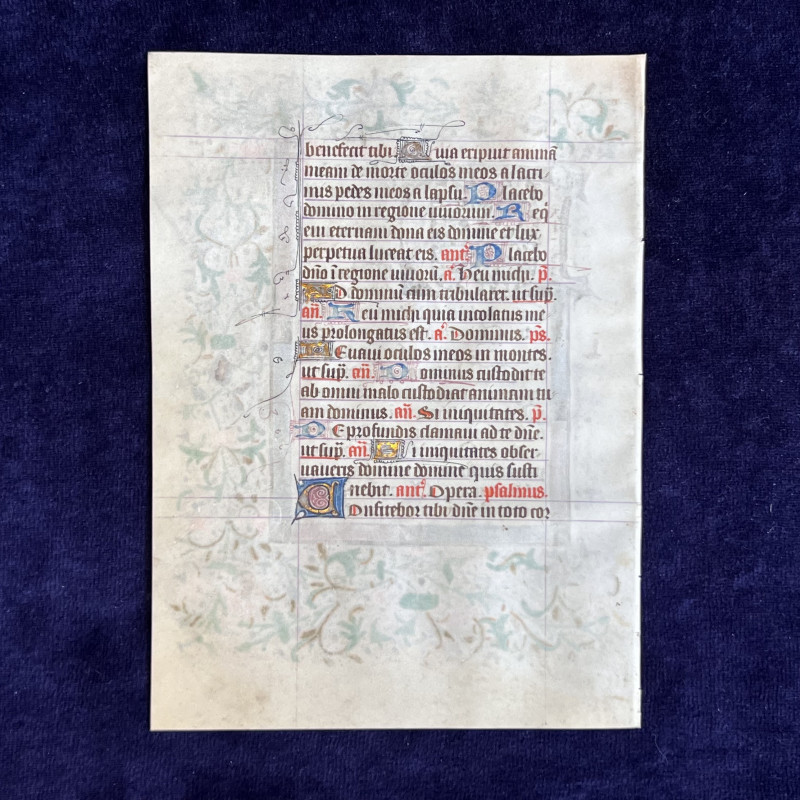 benefecit tibi. Quia eripuit animā
meam de morte oculos meos a lacri
mis pedes meos a lapsu. Placebo
domino in regione uiuorum. Req̄
em eternam dona eis domine et lux
perpetua luceat eis. ant̄. Placebo
dn̄o ī regione uiuorū. a. Heu michi. p̄.
AD dominū cum tribularer. ut sup̄.
an̄. Heu michi quia incolatus me
us prolongatus est. a. Dominus. p̄s.
LEuaui oculos meos in montes.
ut sup̄. an̄. Dominus custodit te
ab omni malo custodiat animam tu
am dominus. an̄. Si iniquitates. p̄.
DE profundis clamaui ad te dn̄e.
ut sup̄. an̄. Si iniquitates obser
uaueris domine domine quis susti
nebit. ant̄. Opera. psalmus.
Confitebor tibi dn̄e in toto cor